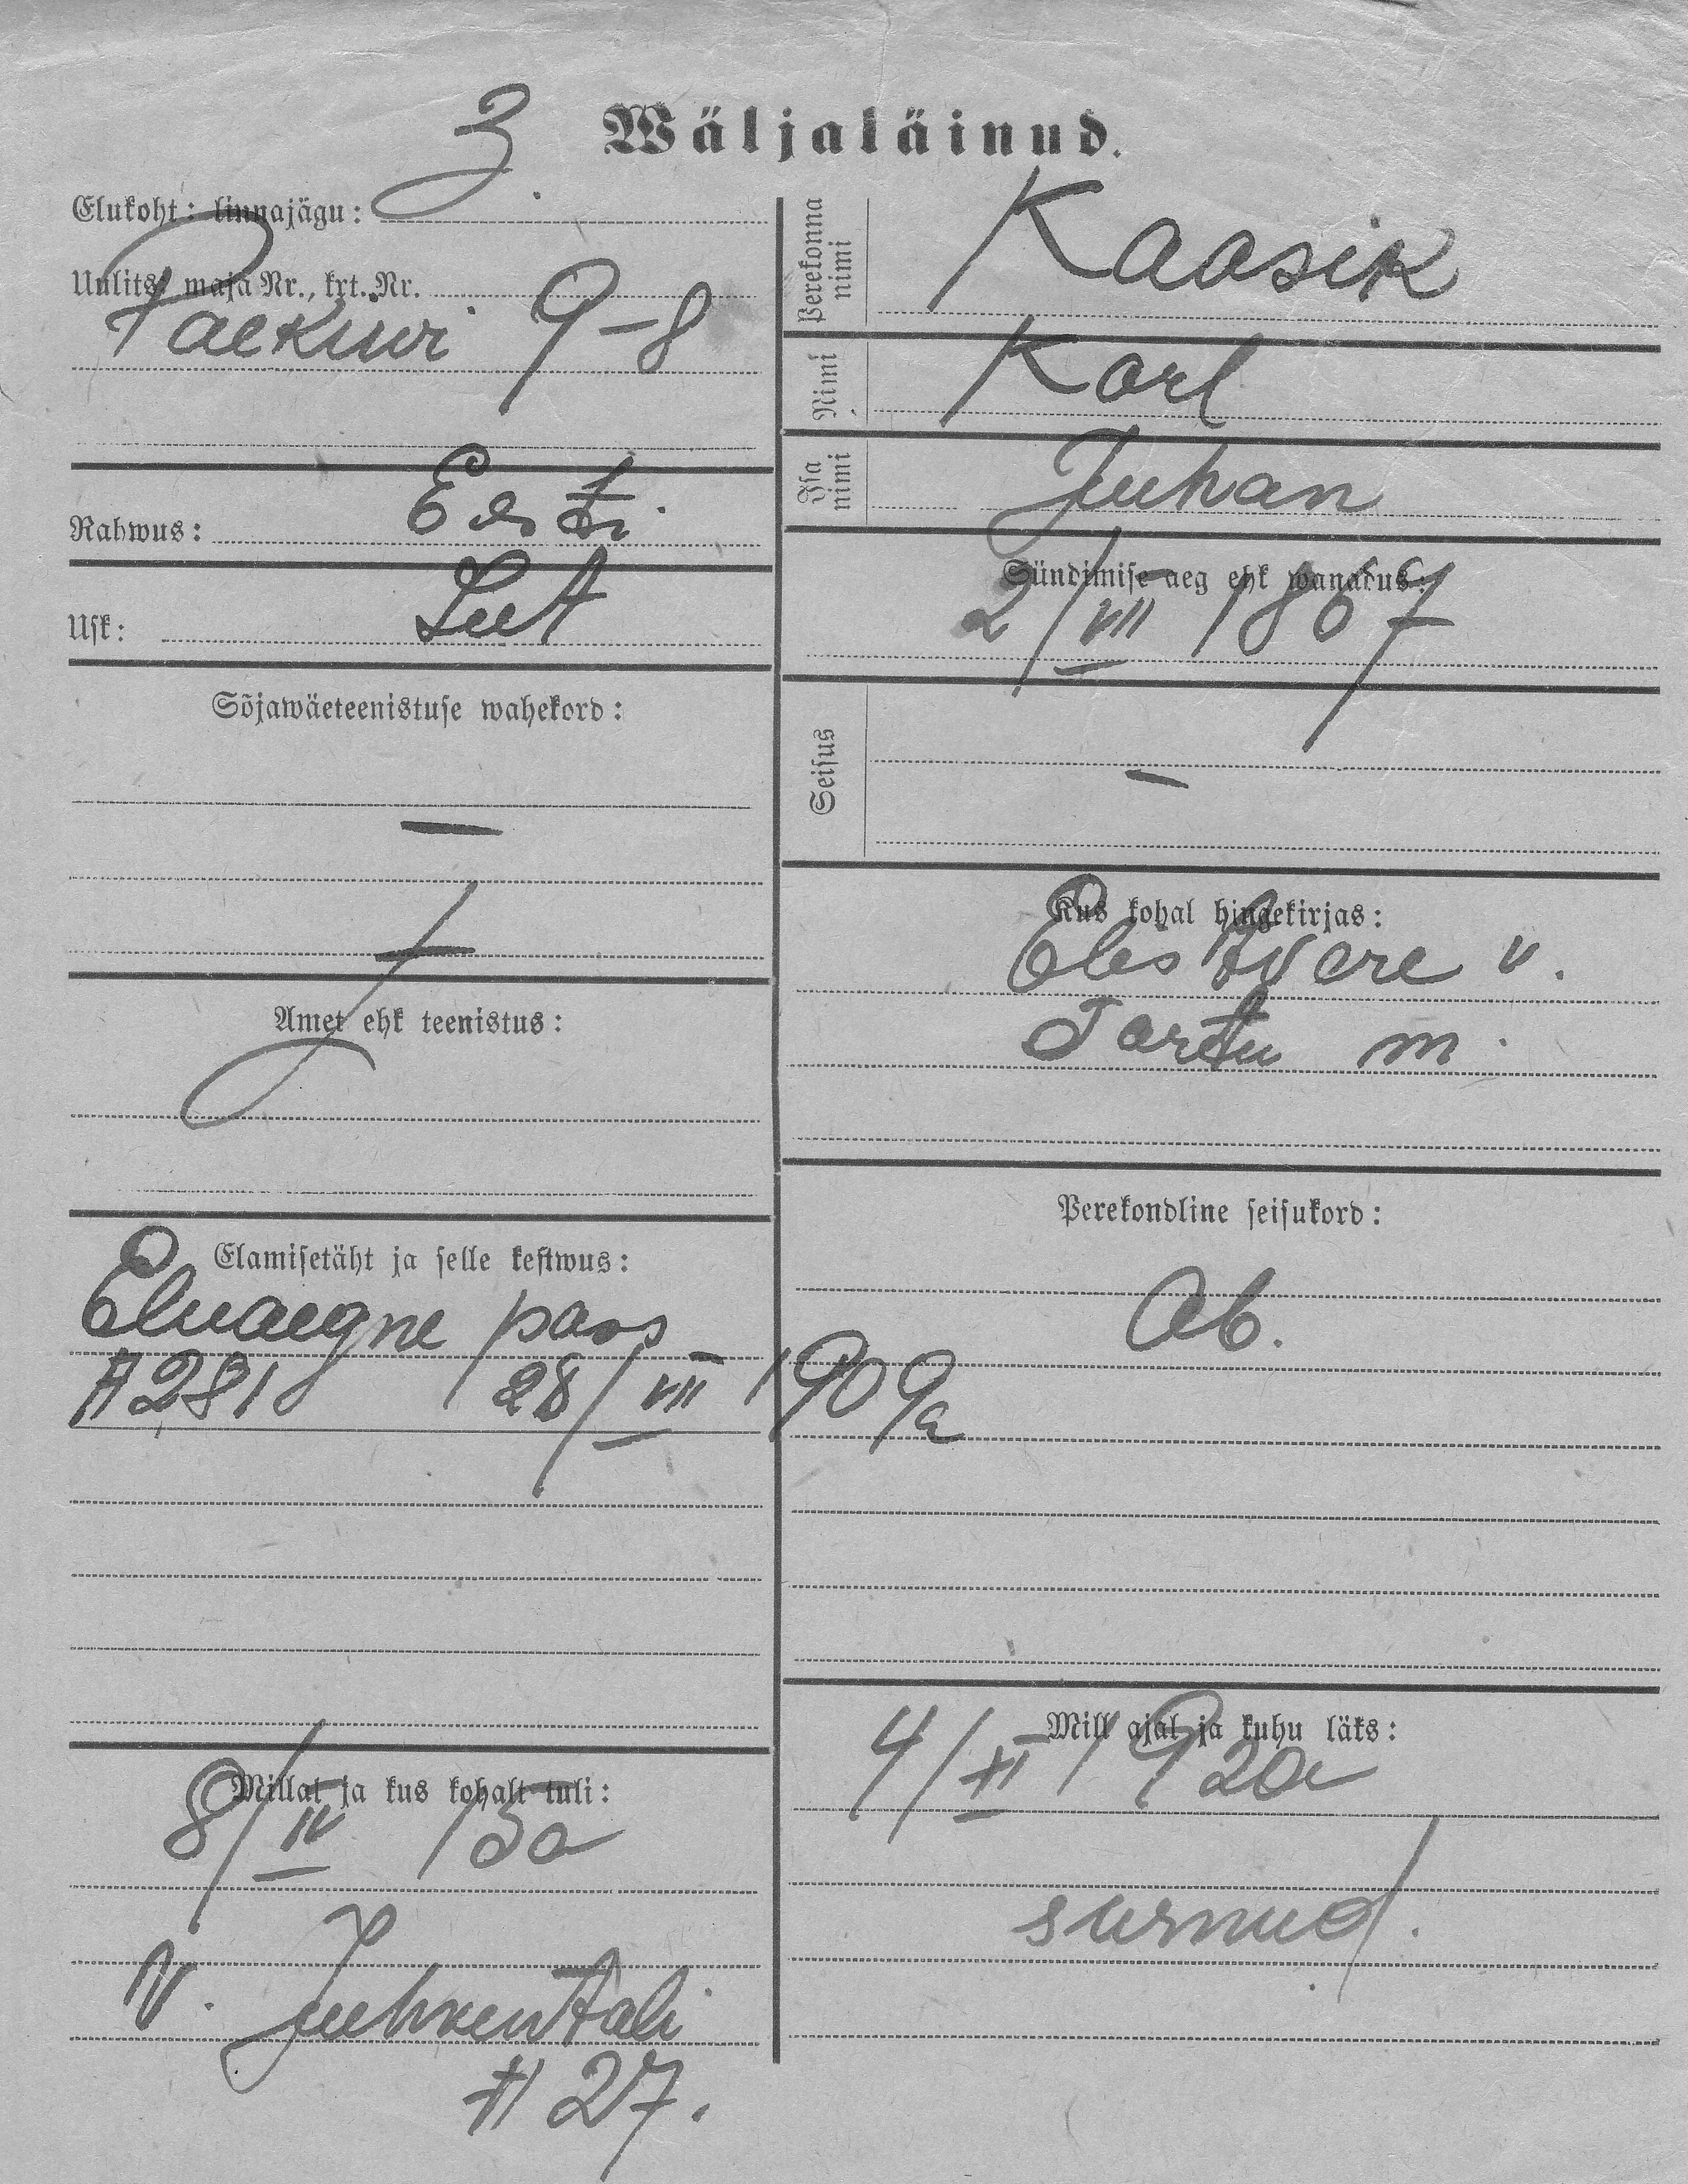 Wäljaläinud.
Elukoht: linnajägu: 3.
Uulits, maja Nr., krt. Nr.
Paekiwi 9–8
Rahwus: Eesti
Usk: Lut
Sõjawäeteenistuse wahekord:
—
Amet ehk teenistus:
Elamisetäht ja selle kestwus:
Eluaegne pass
№ 281 28/VII 1909a
Millat ja kus kohalt tuli:
8/IV 13a
V. Juhkentali
№ 27.
Perekonna nimi
Kaasik
Nimi
Karl
Isa nimi
Juhan
Sündimise aeg ehk wanadus:
2/VII 1867
Seisus
—
Kus kohal hingekirjas:
Elistvere v.
Tartu m.
Perekondline seisukord:
Ab.
Mill ajal ja kuhu läks:
4/XI 1920a
surnud.